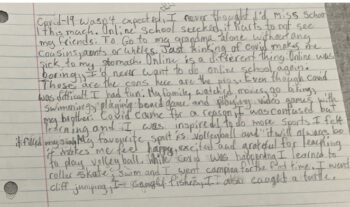 Covid-19 wasn't expected, I never thought I'd miss school
this much. Online school sucked, it hurts to not see
my friends. I'd Go to my grandma alone without any
cousins, aunts or uncles. Just thinking of covid makes me
sick to my stomach. Online is a different thing. Online was
boring, I'd never want to do online school again.
Those are the cons here are the Even though covid
was difficult I had fun. My family watched movies, go biking,
swimming, playing board game and playing video games with
my brother. Covid came for a reason it was confused but
learning and I was inspired to do more sports I felt
My favourite sport is volleyball and it will always be
it makes me feel happy, excited and grateful for learning
to play volleyball. While covid was happening I learned to
roller skate, swim and I went camping for the first time, I went
cliff jumping, I caught fishes, I also caught a turtle.